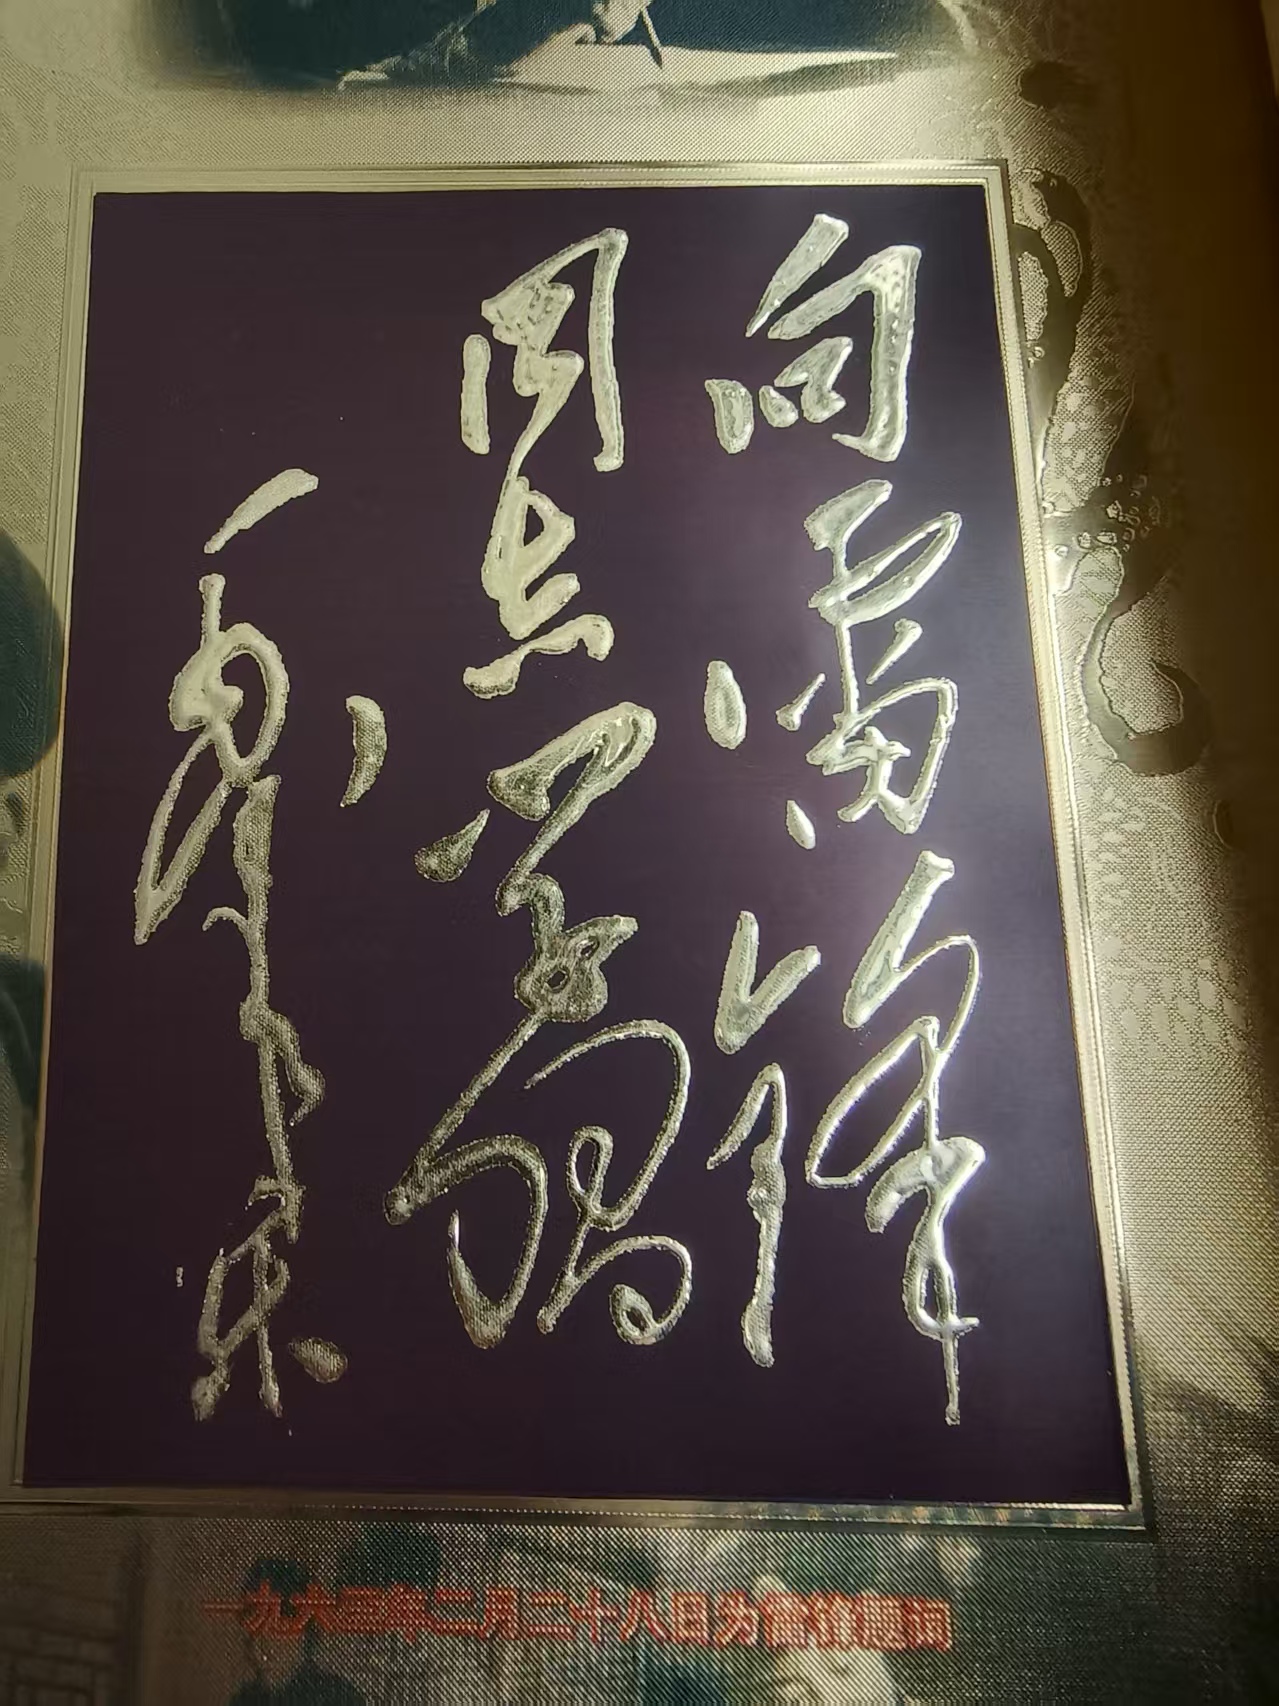 向雷锋
同志学习
毛泽东
一九六四年二月二十八日为雷锋题词